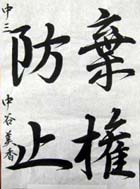 棄権
防止
中三 中谷美香